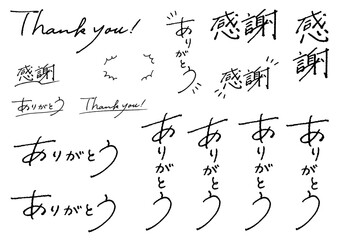 Thank you!
ありがとう
感謝
感謝
感謝
感謝
ありがとう
Thank you!
ありがとう
ありがとう
ありがとう
ありがとう
ありがとう
ありがとう